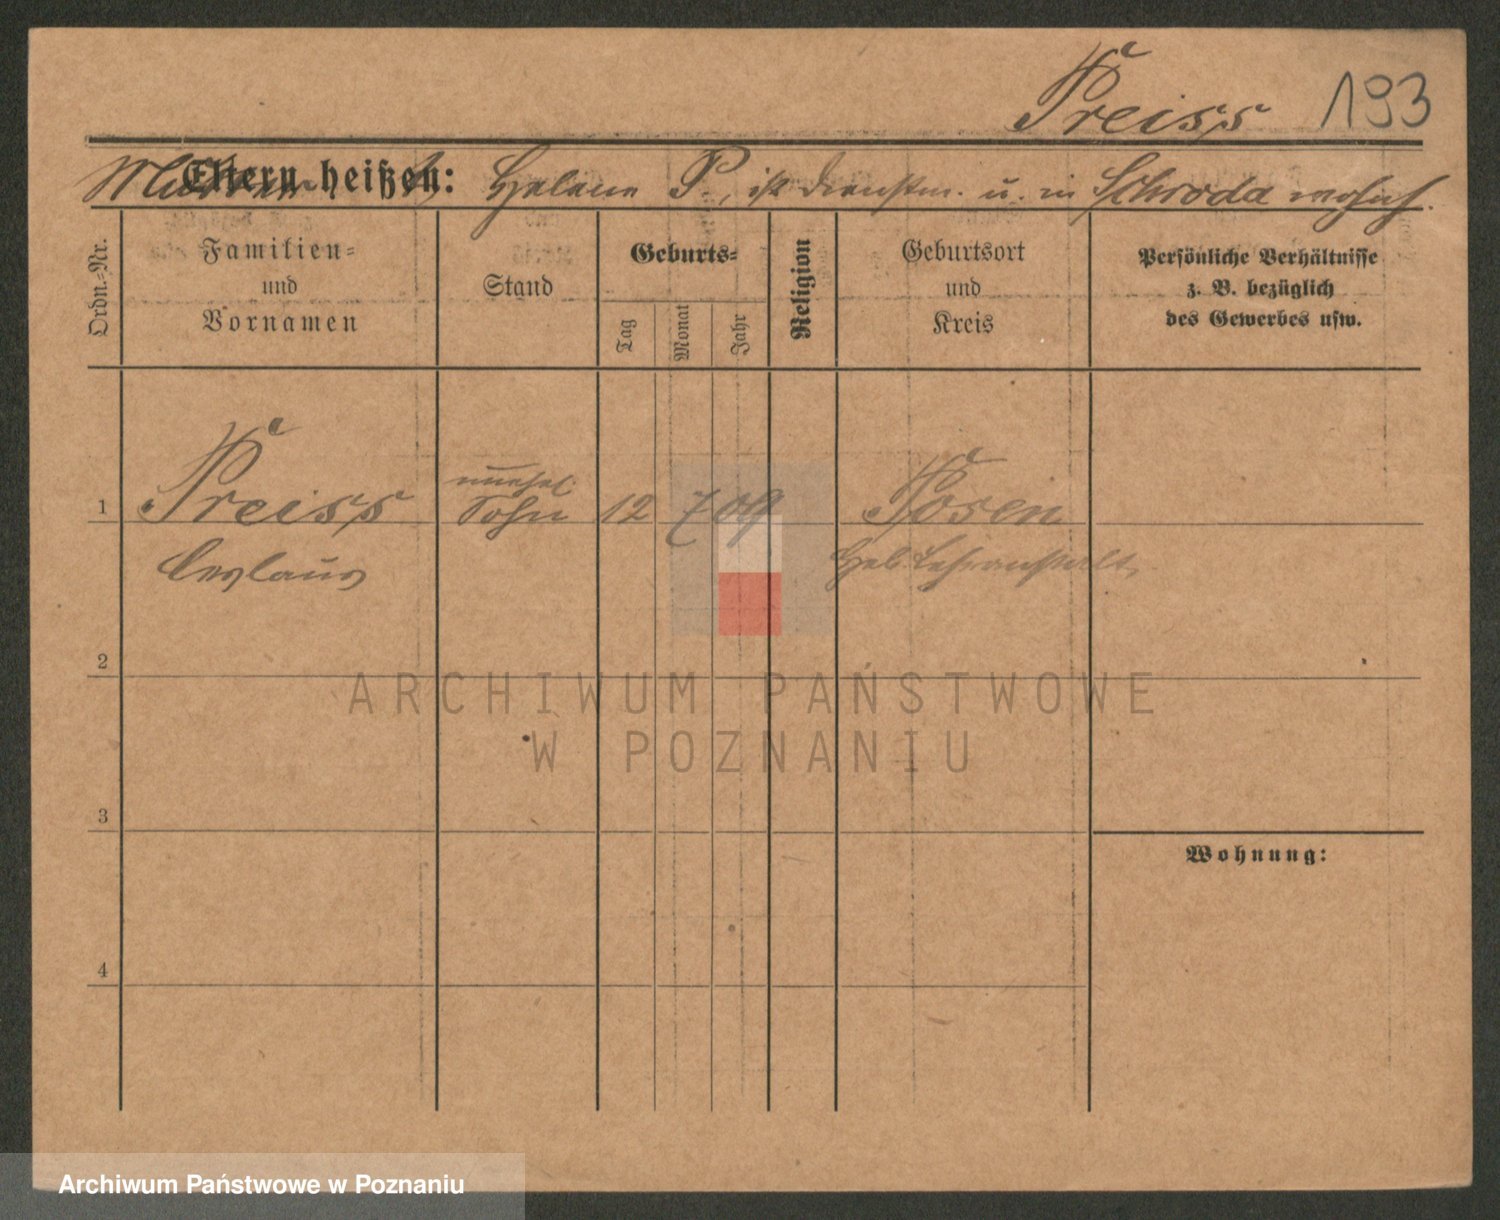 Preiss 193
Eltern heißen: Helene P., ist Dienstm. u. in Schroda wohnh.
Ordn.-Nr.
Familien-
und
Vornamen
Stand
Geburts-
Tag
Monat
Jahr
Religion
Geburtsort
und
Kreis
Persönliche Verhältnisse
z. B. bezüglich
des Gewerbes usw.
1 Preiss unehel. Sohn 12 7 09 Posen
Ceslaus Heb. Lehranstalt
2
3
Wohnung:
4
ARCHIWUM PAŃSTWOWE
W POZNANIU
Archiwum Państwowe w Poznaniu